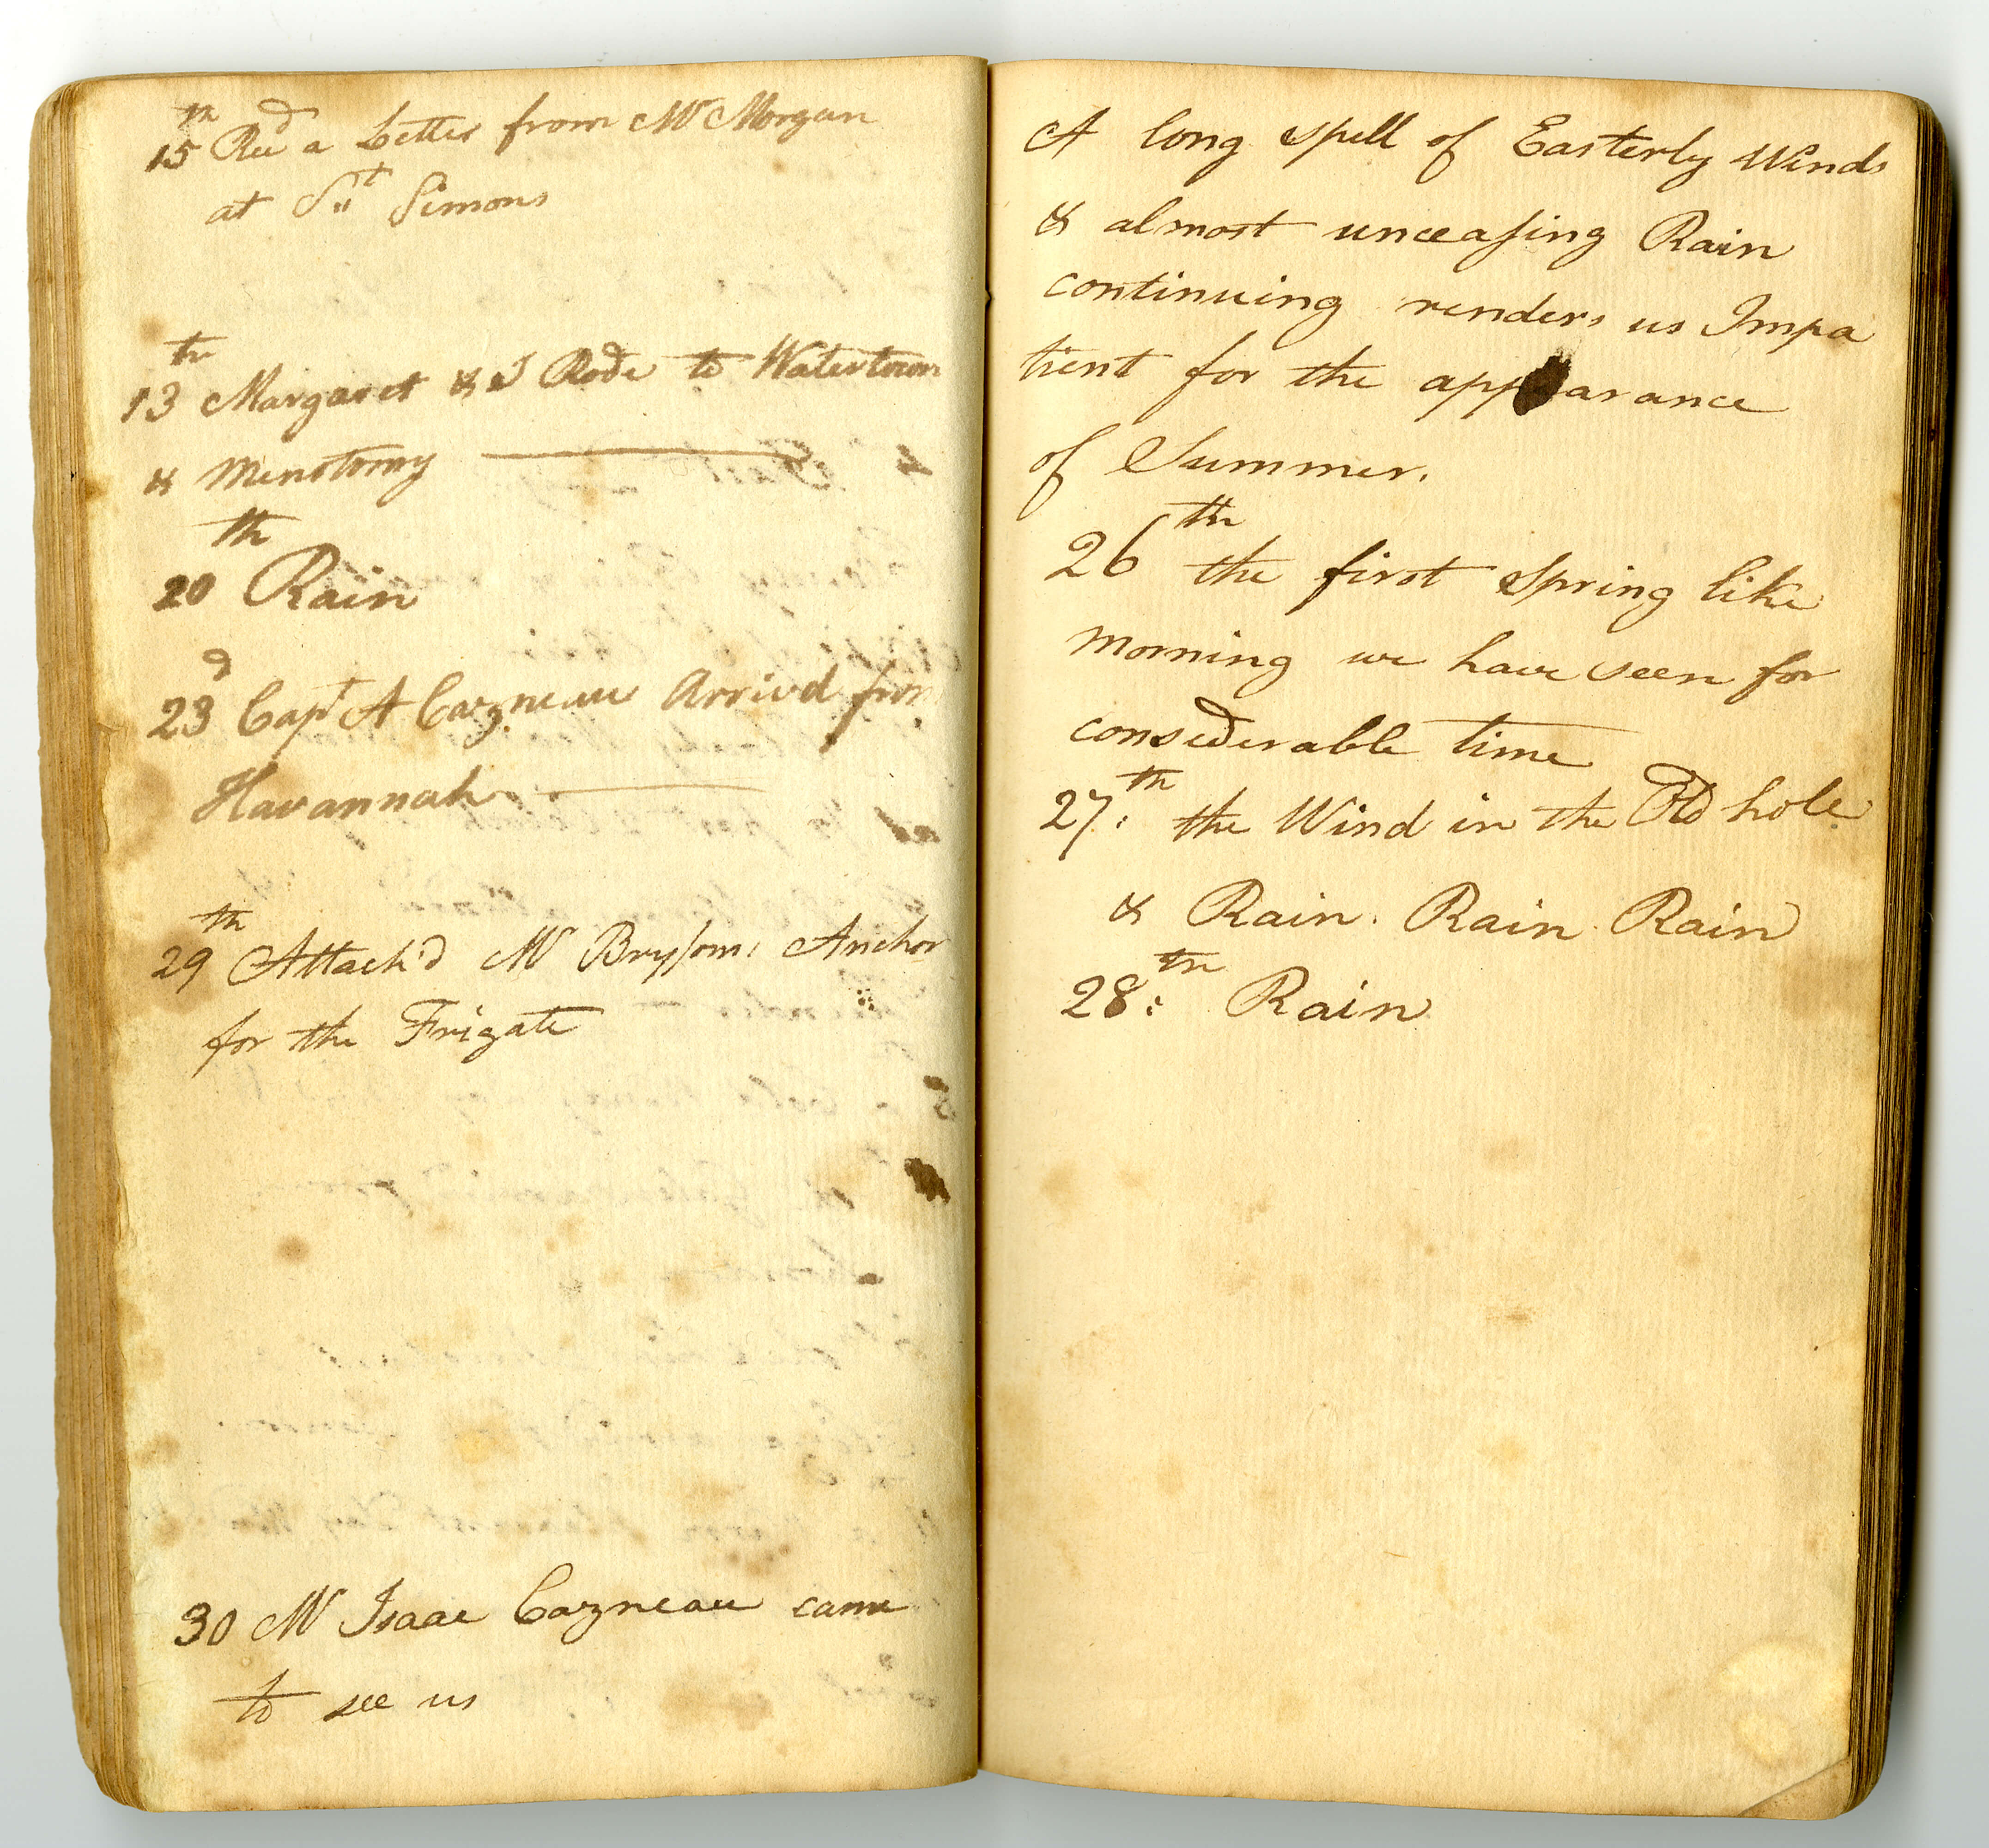 15th Recd a Letter from Mr Morgan
at St Simons
13th Margaret & I Rode to Watertown
& Menotomy
20th Rain
23d Capt A Cazneau Arrivd from
Havannah
29th Attach'd Mr Bryſons Anchor
for the Frigate
30 Mr Isaac Cazneau came
to see us
A long spell of Easterly Winds
& almost unceaſing Rain
continuing renders us Impa
tient for the appearance
of Summer.
26th the first Spring like
morning we have seen for
considerable time
27th: the Wind in the Old hole
& Rain. Rain. Rain
28th: Rain